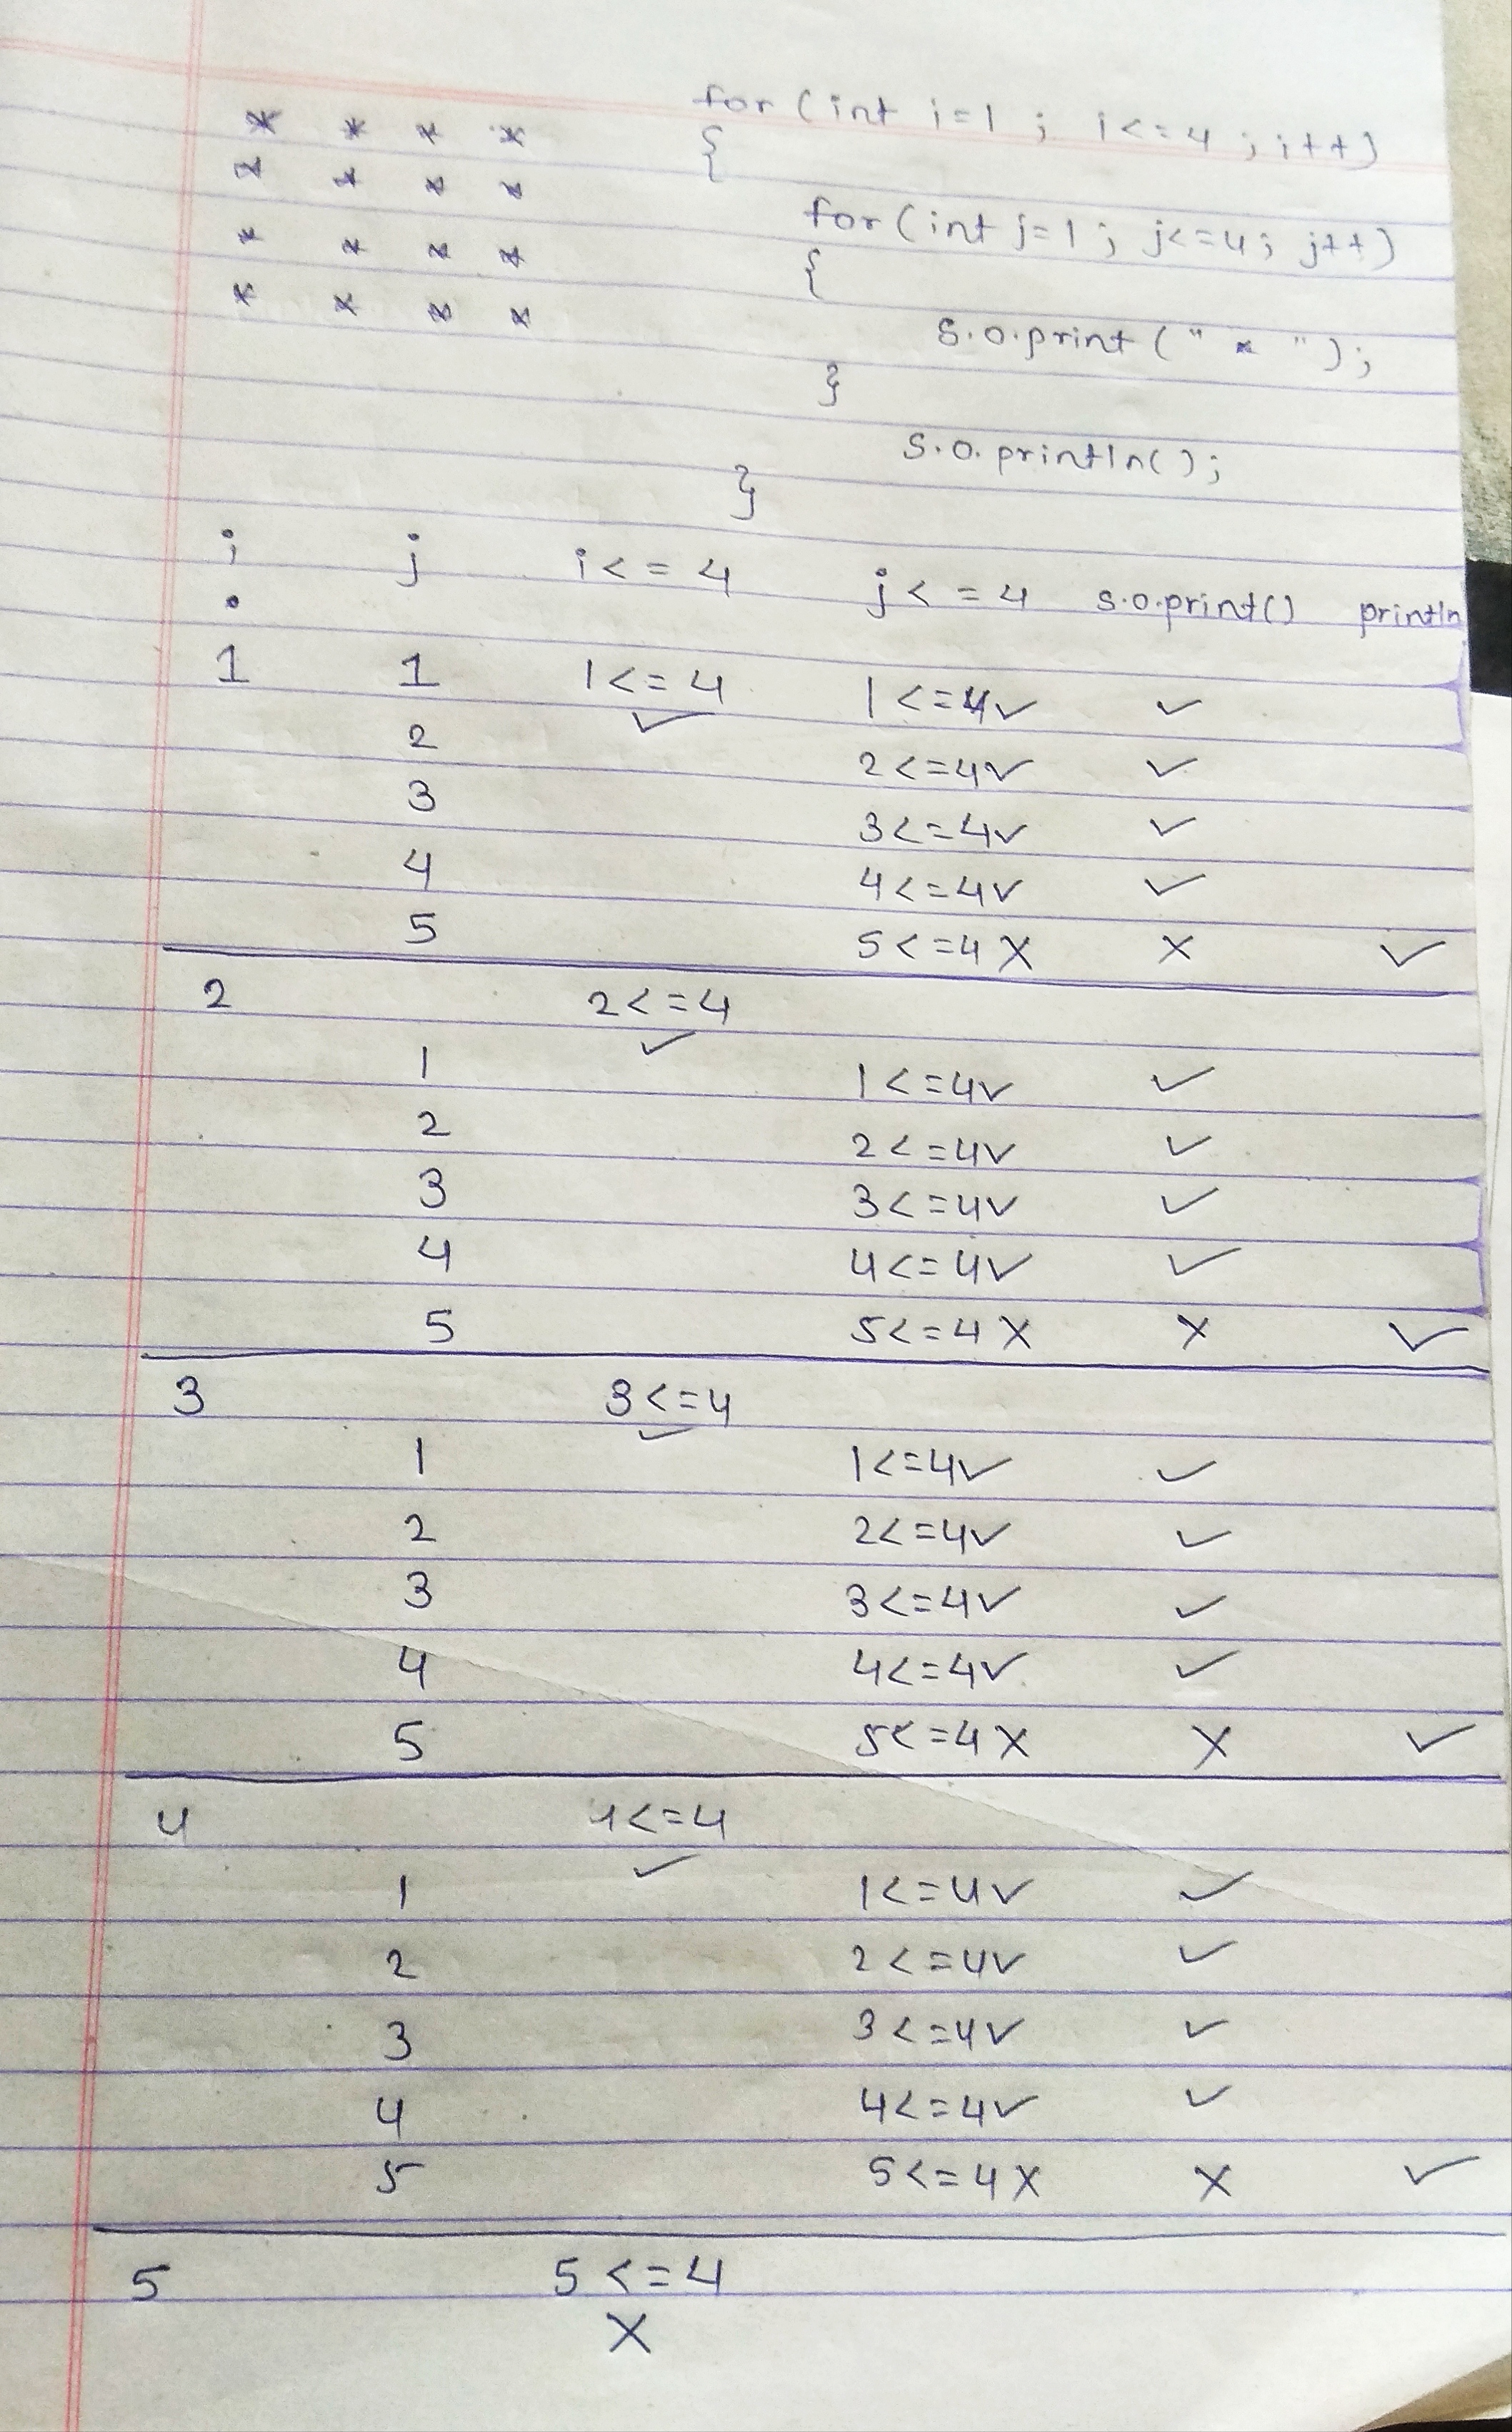 * * * *
* * * *
* * * *
* * * *
for (int i=1 ; i<=4 ; i++)
{
for (int j=1 ; j<=4 ; j++)
{
S.o.print (" * ");
}
S.o.println( );
}
i j i<=4 j<=4 s.o.print() println
1 1 1<=4 ✓ 1<=4✓ ✓
2 2<=4✓ ✓
3 3<=4✓ ✓
4 4<=4✓ ✓
5 5<=4 X X ✓
2 2<=4 ✓
1 1<=4✓ ✓
2 2<=4✓ ✓
3 3<=4✓ ✓
4 4<=4✓ ✓
5 5<=4 X X ✓
3 3<=4 ✓
1 1<=4✓ ✓
2 2<=4✓ ✓
3 3<=4✓ ✓
4 4<=4✓ ✓
5 5<=4 X X ✓
4 4<=4 ✓
1 1<=4✓ ✓
2 2<=4✓ ✓
3 3<=4✓ ✓
4 4<=4✓ ✓
5 5<=4 X X ✓
5 5<=4
X